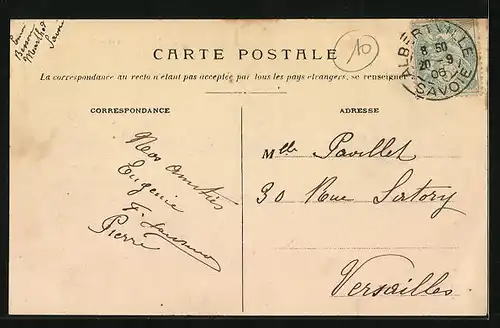 CARTE POSTALE
10
La correspondance au recto n'étant pas acceptée par tous les pays étrangers, se renseigner
ALBERTVILLE
8 50
20 -9
06
SAVOIE
CORRESPONDANCE
ADRESSE
Nos amitiés
Eugénie
Pierre
Mlle Pavillet
30 Rue Satory
Versailles